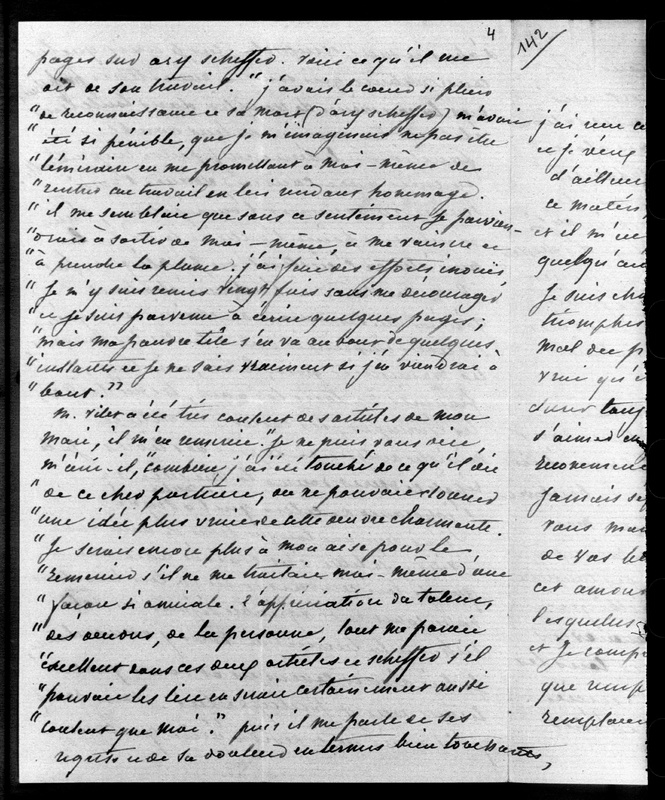 4
142
pages sur ary scheffer. Voici ce qu'il me
dit de son travail. "j'avais le cœur si plein
"de reconnaissance et sa mort (d'ary scheffer) m'avait
"été si pénible, que je m'imaginais ne pas être
"téméraire en me promettant à moi-même de
"rentrer au travail en lui rendant hommage.
"il me semblait que sans ce sentiment je parvien-
"drais à sortir de moi-même, à me vaincre et
"à prendre la plume. j'ai fait des efforts inouïs
"je m'y suis remis vingt fois sans me décourager
"et je suis parvenu à écrire quelques pages ;
"mais ma pauvre tête s'en va au bout de quelques
"instants et je ne sais vraiment si j'en viendrai à
"bout."
M. Vitet a été très content des articles de mon
mari, il m'en remercie. "Je ne puis vous dire,
m'écrit-il, "combien j'ai été touché de ce qu'il dit
"de ce cher partner, on ne pouvait donner
"une idée plus vraie de cette œuvre charmante.
"Je serais encore plus à mon aise pour le
"remercier s'il ne me traitait moi-même d'une
"façon si amicale. L'appréciation du talent,
"des œuvres, de la personne, tout me paraît
"excellent dans ces deux articles et scheffer s'il
"pouvait les lire en serait certainement aussi
"content que moi." puis il me parle de ses
regrets et de sa douleur en termes bien touchants,
j'ai reçu
et je veux
d'ailleurs
ce matin
et il m'en
quelqu'
je suis
triomphe
mal de
vrai qu'
dont
s'aimer
jamais
vous
de vos
cet amour
lesquelles
et je comp
que
remplacer